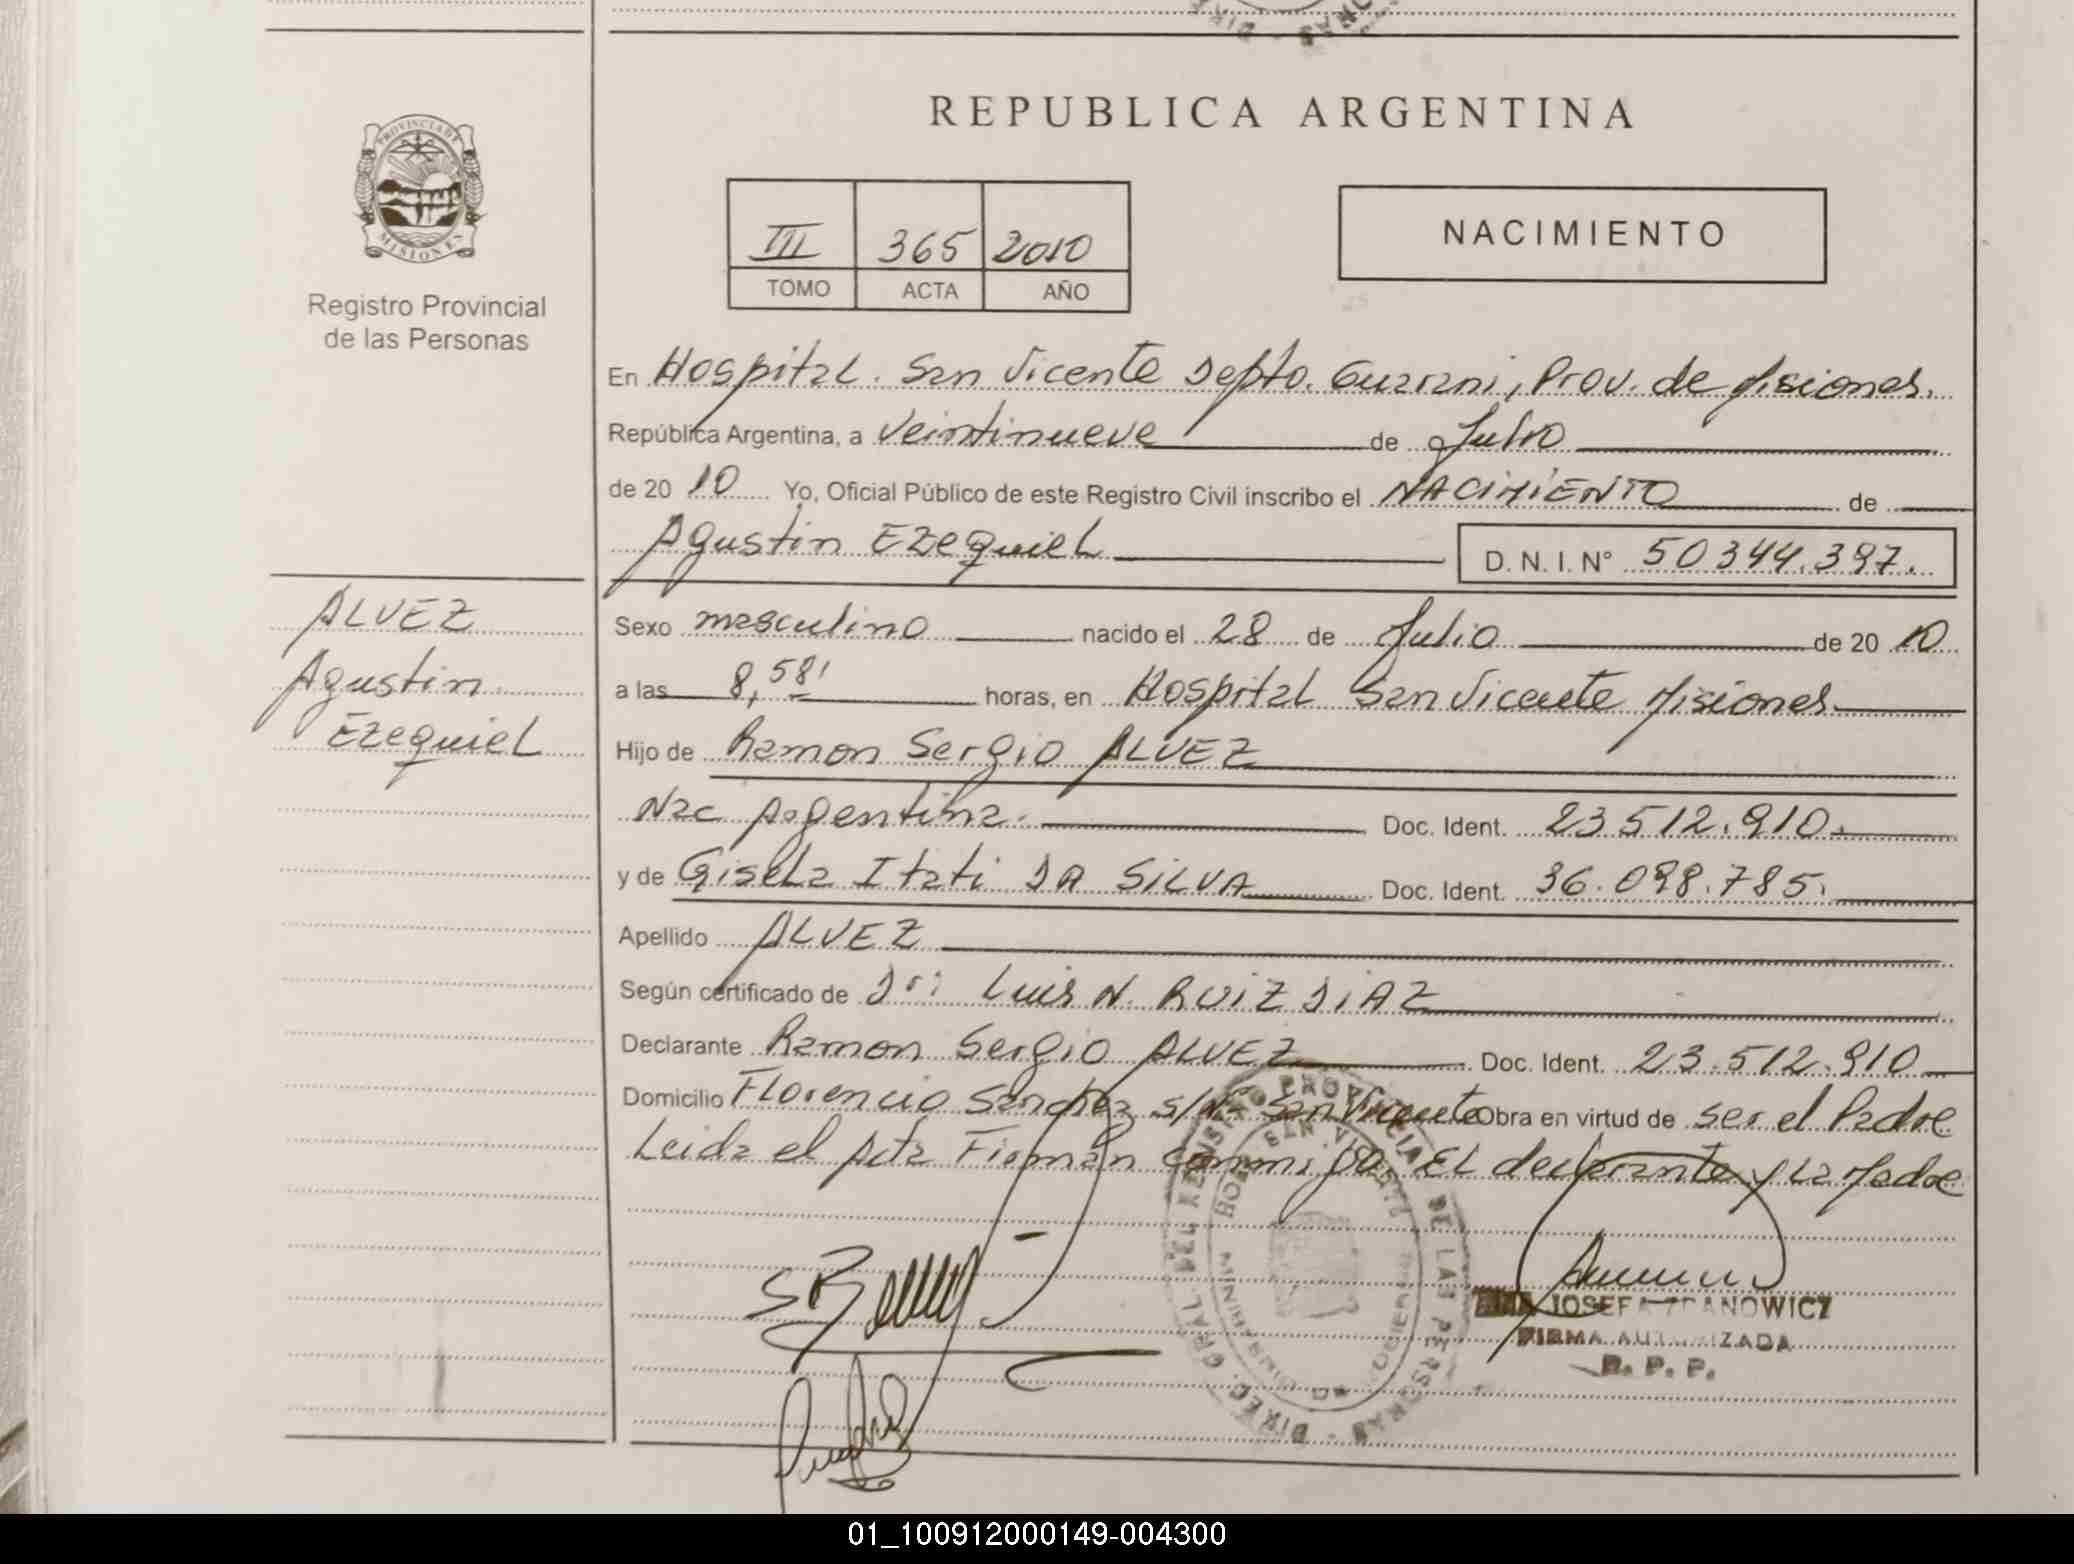 REPUBLICA ARGENTINA
PROVINCIA DE
MISIONES
Registro Provincial
de las Personas
III 365 2010
TOMO ACTA AÑO
NACIMIENTO
En Hospital. San Vicente Depto. Guarani, Prov. de Misiones.
República Argentina, a Veintinueve de Julio
de 20 10 Yo, Oficial Público de este Registro Civil inscribo el NACIMIENTO de
Agustin EzequieL
D. N. I. Nº 50344.397.
ALVEZ
Agustin
EzequieL
Sexo masculino nacido el 28 de Julio de 20 10
a las 8,58' horas, en Hospital San Vicente Misiones
Hijo de Ramon Sergio ALVEZ
Nac Argentina. Doc. Ident. 23512.910.
y de Gisela Itati DA SILVA Doc. Ident. 36.098.785.
Apellido ALVEZ
Según certificado de Dr: Luis N. RUIZ DIAZ
Declarante Ramon Sergio ALVEZ Doc. Ident. 23.512.910
Domicilio Florencio Sanchez s/Nº San Vicente Obra en virtud de ser el Padre
Leida el Acta Firman conmigo. El declarante y La Madre
DIREC. GRAL. DEL REGISTRO PROVINCIAL DE LAS PERSONAS
JOSEFA ZDANOWICZ
FIRMA AUTORIZADA
R. P. P.
01_100912000149-004300